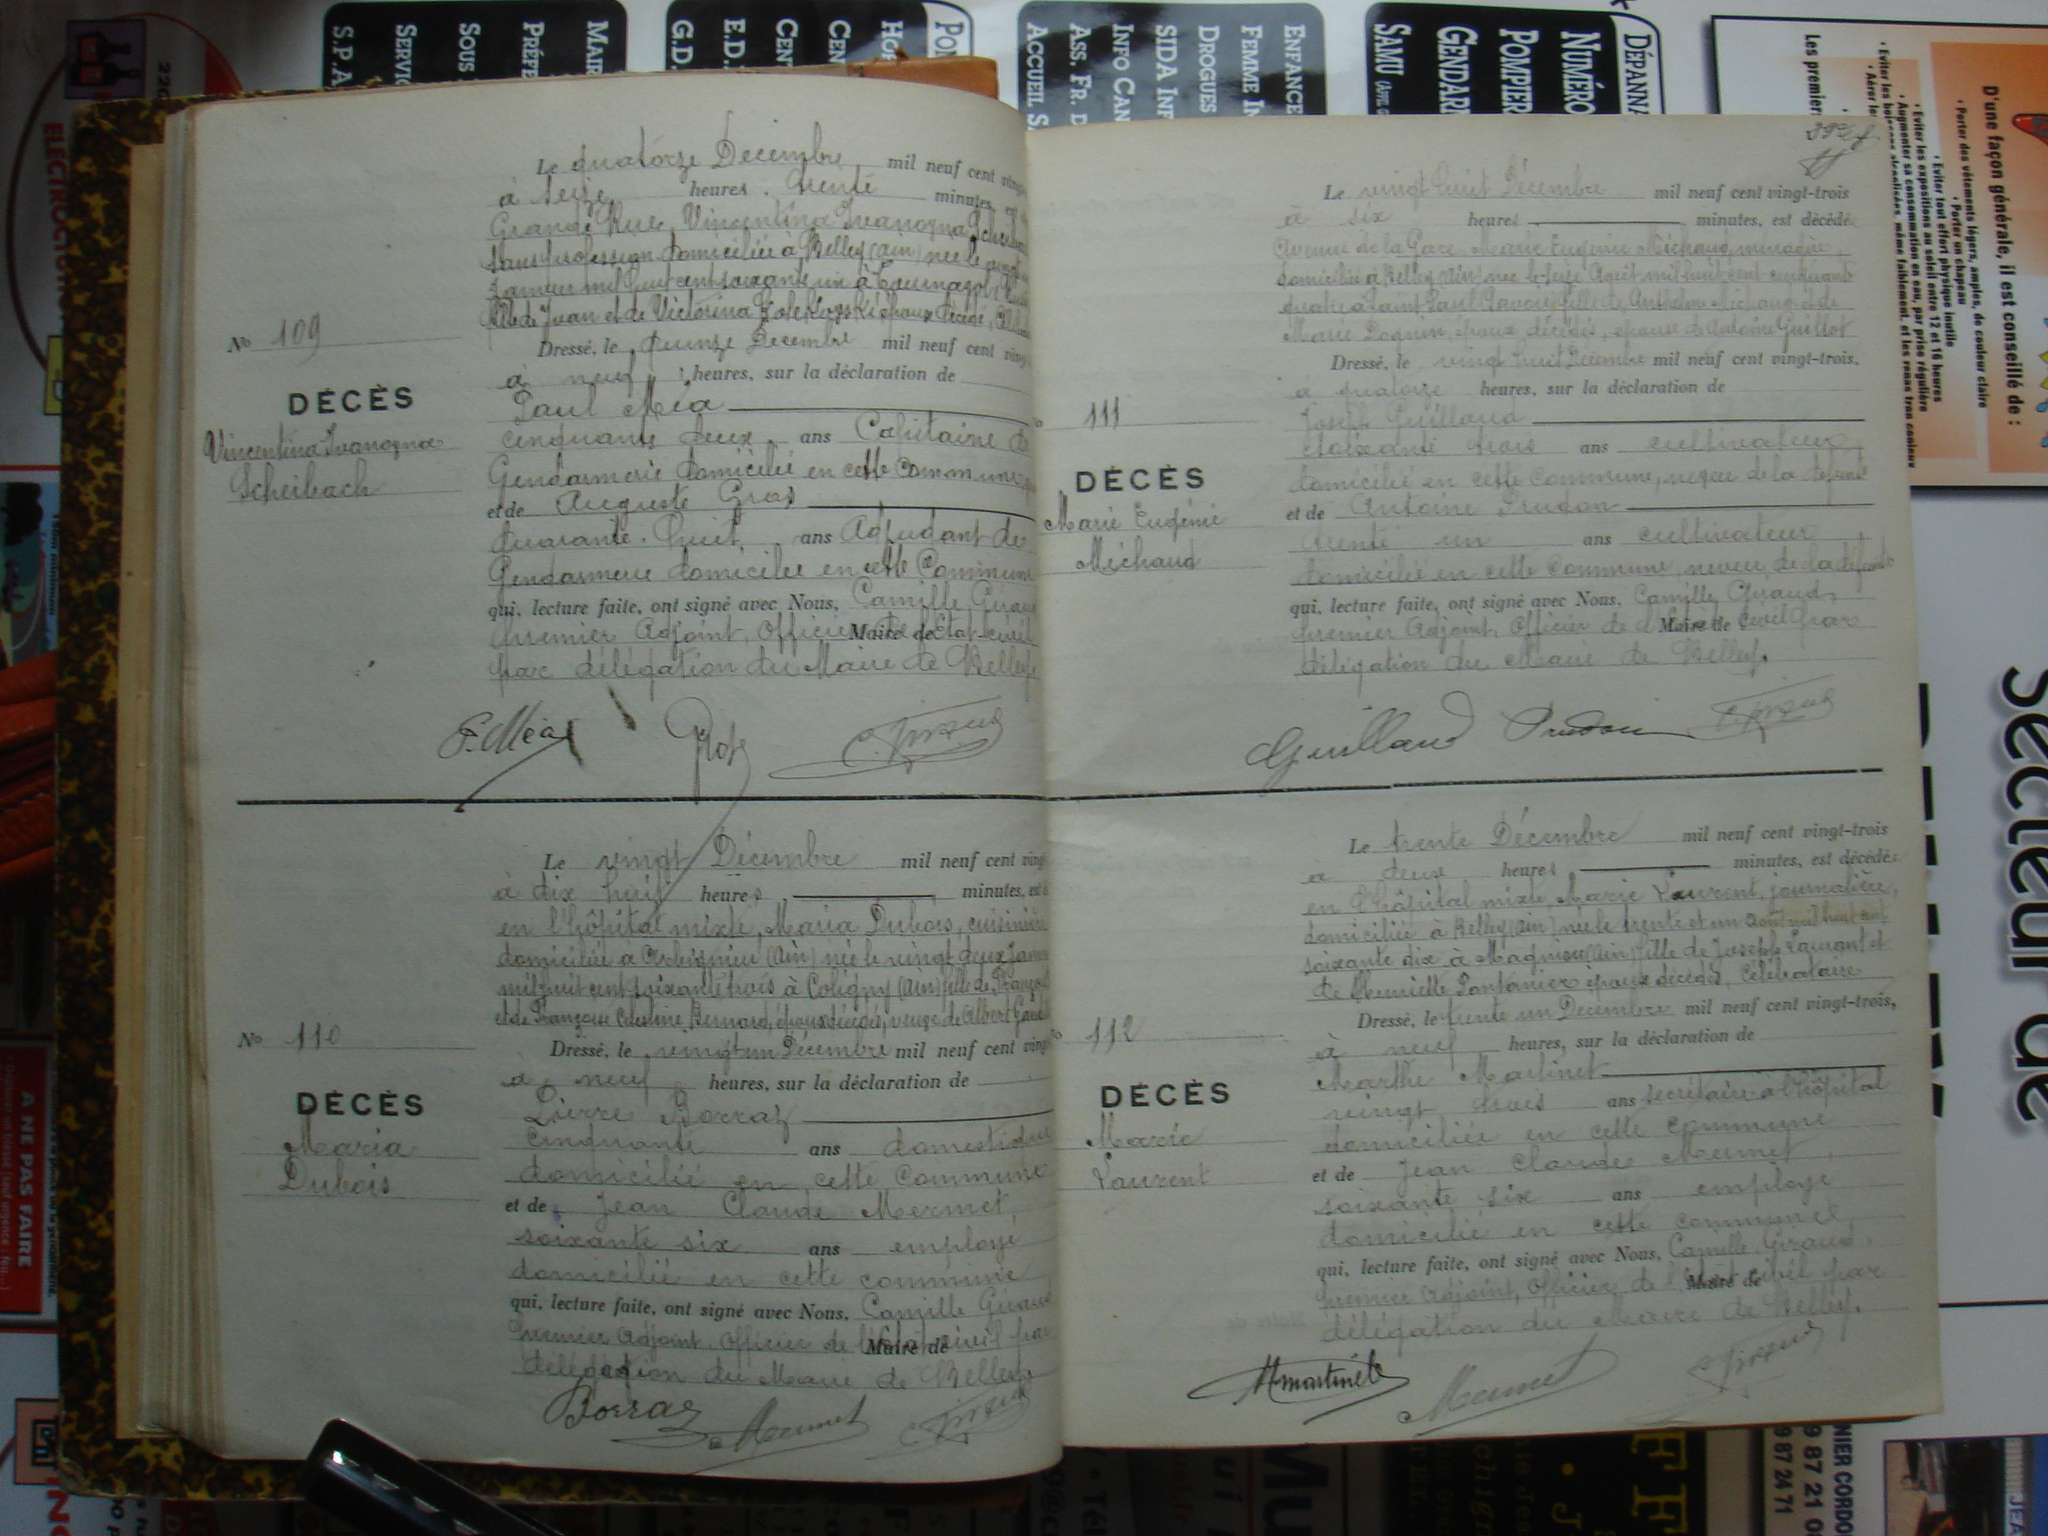 Le quatorze Décembre mil neuf cent vingt
à seize heures trente minutes, est
Grande Rue, Vincentina Ivanogna Scheibach
sans profession domiciliée à Belley (Ain) née le
Janvier mil huit cent soixante un à
fille de Juan et de Victorina époux décédés,
Dressé, le quinze Décembre mil neuf cent vingt
à neuf heures, sur la déclaration de
Paul Méa
cinquante deux ans Capitaine de
Gendarmerie domicilié en cette commune
et de Auguste Gros
quarante huit ans Adjudant de
Gendarmerie domicilié en cette Commune
qui, lecture faite, ont signé avec Nous, Camille Giraud
premier Adjoint, Officier de l'Etat-civil Maire de
par délégation du Maire de Belley.
No 109
DÉCÈS
Vincentina Ivanogna
Scheibach
P. Méa Gros C. Giraud
Le vingt Décembre mil neuf cent vingt
à dix huit heures minutes, est
en l'hôpital mixte, Maria Dubois, cuisinière
domiciliée à (Ain) née le vingt deux
mil huit cent soixante trois à Coligny (Ain) fille de François
et de Françoise Bernard, époux décédés, veuve de Albert
Dressé, le vingt un Décembre mil neuf cent vingt
à neuf heures, sur la déclaration de
Pierre Borraz
cinquante ans domestique
domicilié en cette commune
et de Jean Claude Mermet,
soixante six ans employé
domicilié en cette commune
qui, lecture faite, ont signé avec Nous, Camille Giraud
premier Adjoint, Officier de l'état civil par Maire de
délégation du Maire de Belley.
No 110
DÉCÈS
Maria
Dubois
Borraz Mermet C. Giraud
Le vingt huit Décembre mil neuf cent vingt-trois
à six heures minutes, est décédé
Avenue de la Gare Marie Eugénie Michaud, ménagère,
domiciliée à Belley (Ain) née le seize Août mil huit cent cinquante
quatre à Saint Paul (Savoie) fille de Anthelme Michaud et de
Marie époux décédés, épouse de Antoine Guillot
Dressé, le vingt huit Décembre mil neuf cent vingt-trois.
à quatorze heures, sur la déclaration de
Joseph Guilland
soixante trois ans cultivateur
domicilié en cette Commune, neveu de la défunte
et de Antoine Prudon
trente un ans cultivateur
domicilié en cette commune, neveu de la défunte
qui, lecture faite, ont signé avec Nous, Camille Giraud,
premier Adjoint, Officier de Maire de civil par
délégation du Maire de Belley.
111
DÉCÈS
Marie Eugénie
Michaud
Guilland Prudon C. Giraud
Le trente Décembre mil neuf cent vingt-trois
à deux heures minutes, est décédée
en l'hôpital mixte, Marie Laurent, journalière,
domiciliée à Belley (Ain) née le trente et un août mil huit cent
soixante dix à Magnieu (Ain) fille de Joseph Laurent et
de époux décédés, Célibataire
Dressé, le trente un Décembre mil neuf cent vingt-trois,
à neuf heures, sur la déclaration de
Marthe Martinet
vingt trois ans secrétaire à l'hôpital
domiciliée en cette commune
et de Jean Claude Mermet,
soixante six ans employé
domicilié en cette commune,
qui, lecture faite, ont signé avec Nous, Camille Giraud,
premier Adjoint, Officier de l'état civil par Maire de
délégation du Maire de Belley.
112
DÉCÈS
Marie
Laurent
M Martinet Mermet C. Giraud
DÉPANNA
NUMÉRO
POMPIER
GENDARM
SAMU
ENFANCE
FEMME IN
DROGUES
SIDA INF
INFO CAN
ASS. FR. D
ACCUEIL S.
G.D.
E.D.
CENT
CEN
MAIR
PRÉFE
SOUS
SERVIC
S.P.A
D'une façon générale, il est conseillé de :
• Porter des vêtements légers, amples, de couleur claire
• Porter un chapeau
• Eviter tout effort physique inutile
• Eviter les expositions au soleil entre 12 et 16 heures
• Augmenter sa consommation en eau, par prise régulière
Les premier
secteur de
A NE PAS FAIRE
NIER CORDO
9 87 21 0
9 87 24 71